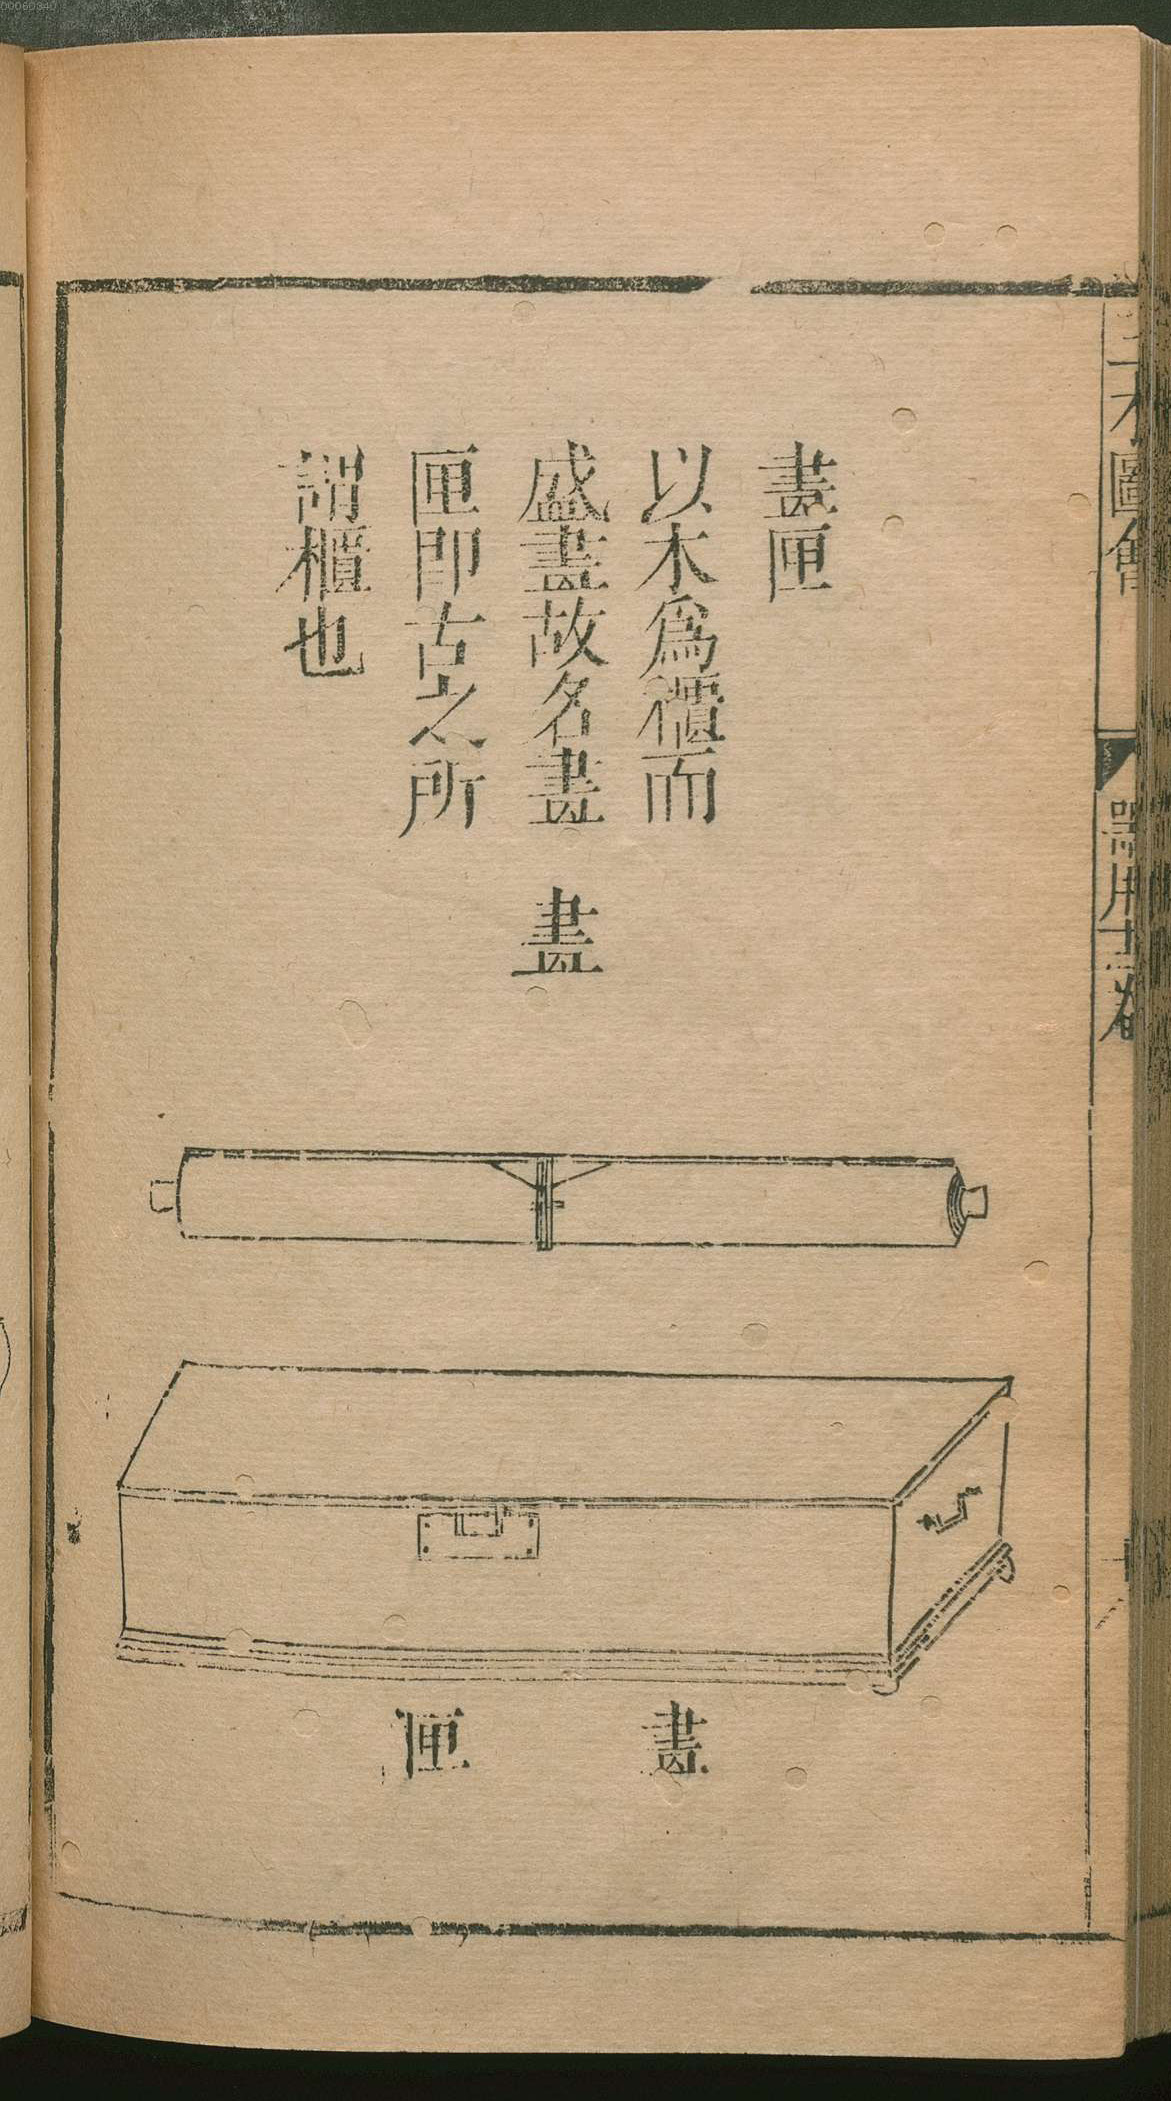 00060340
三才圖會
器用十二卷
畫匣
以木爲櫃而
盛畫故名畫
匣即古之所
謂櫃也
畫
畫匣